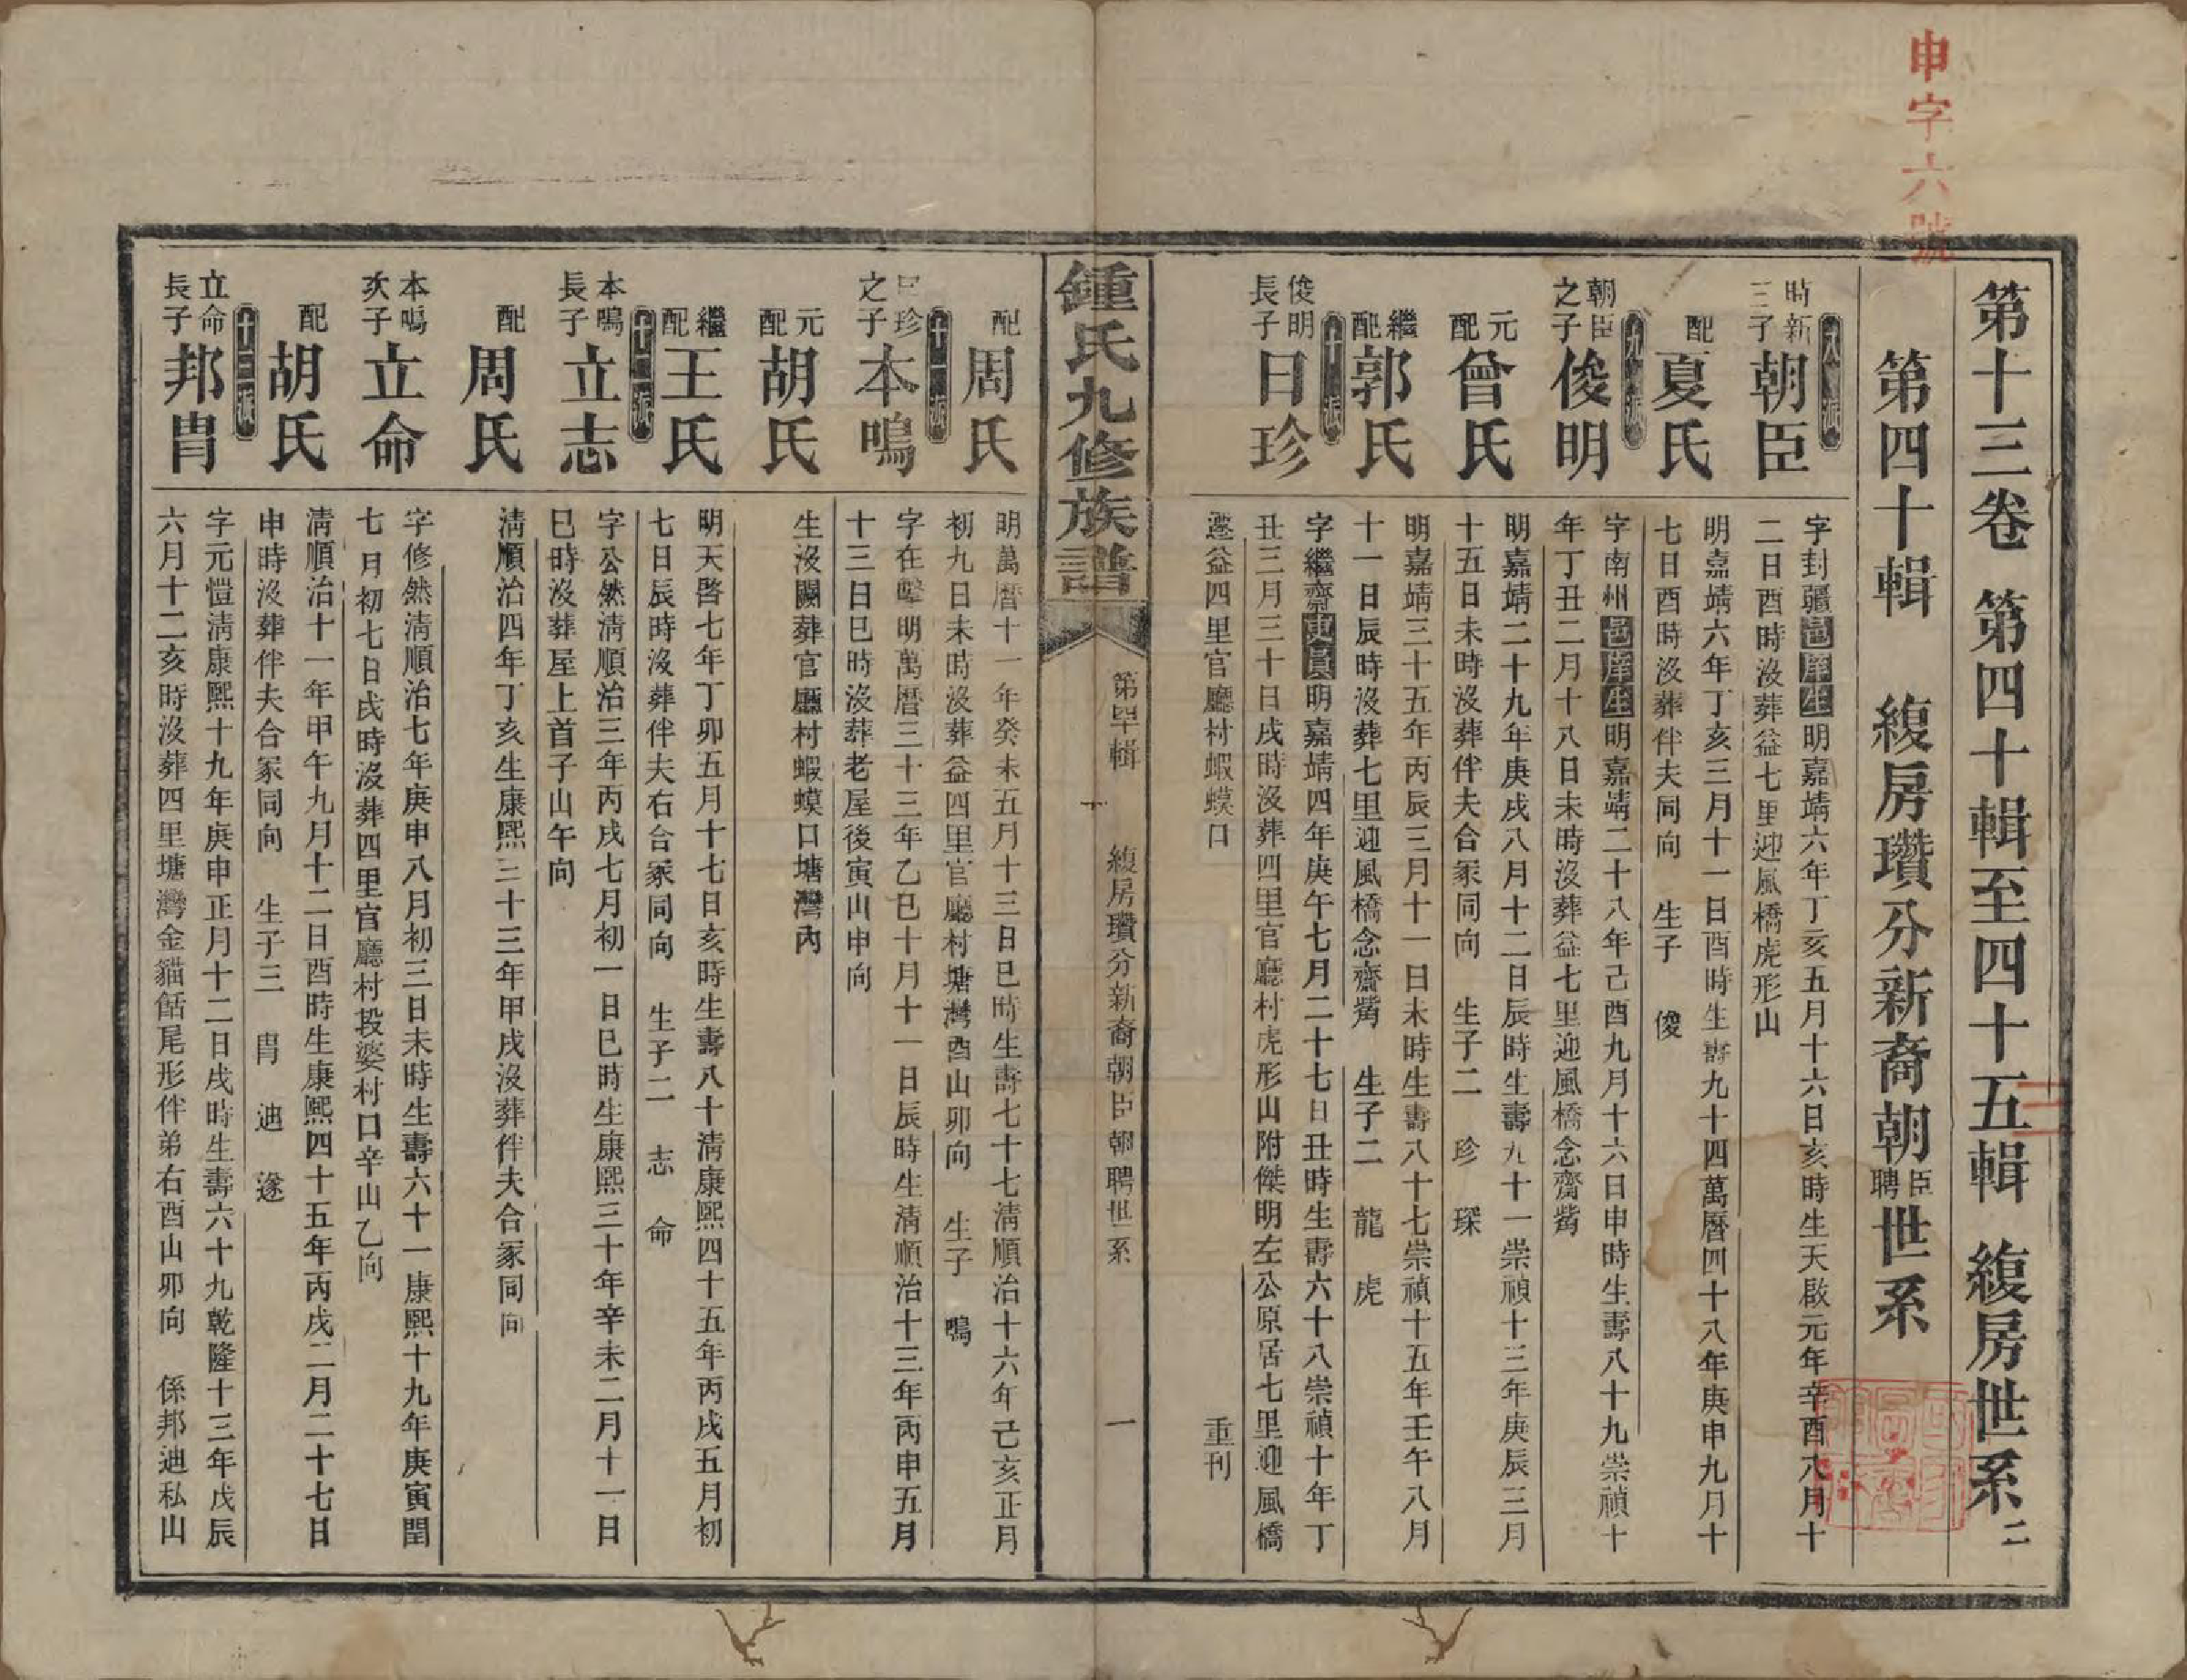 申字六號
第十三卷 第四十輯至四十五輯 緮房世系二
第四十輯 緮房瓚分新裔朝臣聘世系
八派
時新三子 朝臣
字封疆邑庠生明嘉靖六年丁亥五月十六日亥時生天啟元年辛酉八月十
二日酉時沒葬益七里迎風橋虎形山
配 夏氏
明嘉靖六年丁亥三月十一日酉時生壽九十四萬曆四十八年庚申九月十
七日酉時沒葬伴夫同向 生子 俊
九派
朝臣之子 俊明
字南州邑庠生明嘉靖二十八年己酉九月十六日申時生壽八十九崇禎十
年丁丑二月十八日未時沒葬益七里迎風橋念齋觜
元配 曾氏
明嘉靖二十九年庚戌八月十二日辰時生壽九十一崇禎十三年庚辰三月
十五日未時沒葬伴夫合冢同向 生子二 珍 琛
繼配 郭氏
明嘉靖三十五年丙辰三月十一日未時生壽八十七崇禎十五年壬午八月
十一日辰時沒葬七里迎風橋念齋觜 生子二 龍 虎
十派
俊明長子 日珍
字繼齋明嘉靖四年庚午七月二十七日丑時生壽六十八崇禎十年丁
丑三月三十日戌時沒葬四里官廳村虎形山附傑明左公原居七里迎風橋
遷益四里官廳村蝦蟆口 重刊
鍾氏九修族譜
第四十輯
緮房瓚分新裔朝臣聘世系
一
配 周氏
明萬曆十一年癸未五月十三日巳時生壽七十七清順治十六年己亥正月
初九日未時沒葬益四里官廳村塘灣酉山卯向 生子 鳴
十一派
日珍之子 本鳴
字在聲明萬曆三十三年乙巳十月十一日辰時生清順治十三年丙申五月
十三日巳時沒葬老屋後寅山申向
元配 胡氏
生沒闕葬官廳村蝦蟆口塘灣內
繼配 王氏
明天啓七年丁卯五月十七日亥時生壽八十清康熙四十五年丙戌五月初
七日辰時沒葬伴夫右合冢同向 生子二 志 命
十二派
本鳴長子 立志
字公然清順治三年丙戌七月初一日巳時生康熙三十年辛未二月十一日
巳時沒葬屋上首子山午向
配 周氏
清順治四年丁亥生康熙三十三年甲戌沒葬伴夫合冢同向
本鳴次子 立命
字修然清順治七年庚申八月初三日未時生壽六十一康熙十九年庚寅閏
七月初七日戌時沒葬四里官廳村投婆村口辛山乙向
配 胡氏
清順治十一年甲午九月十二日酉時生康熙四十五年丙戌二月二十七日
申時沒葬伴夫合冢同向 生子三 胄 迪 遂
十三派
立命長子 邦胄
字元愷清康熙十九年庚申正月十二日戌時生壽六十九乾隆十三年戊辰
六月十二亥時沒葬四里塘灣金貓䑛尾形伴弟右酉山卯向 係邦迪私山